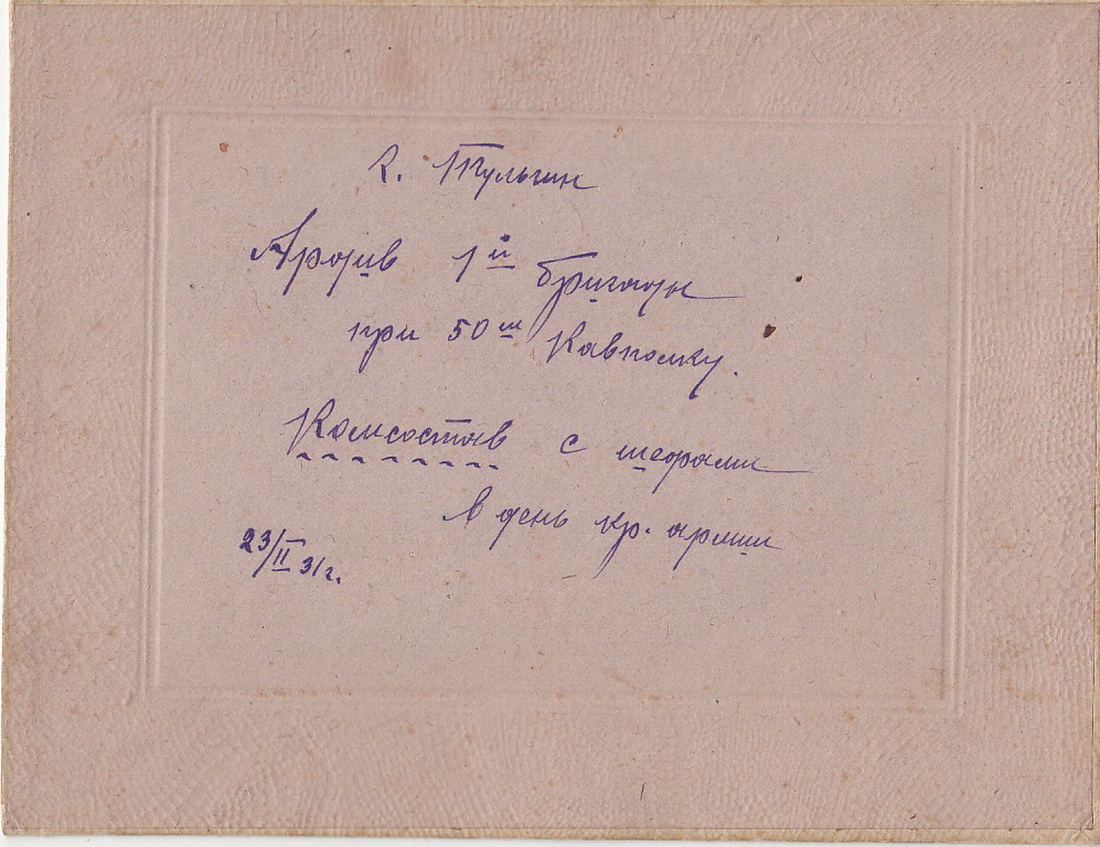 г. Тульчин
1й бригады
при 50м Кавполку.
Комсостав с шефами
в день кр. армии
23/II 31г.